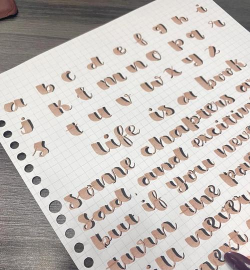 a b c d e f g h i
j k l m n o p q r
s t u v w x y z
life is a book
some chapters a
sad and exciting
but if you never
turn the pa
u never